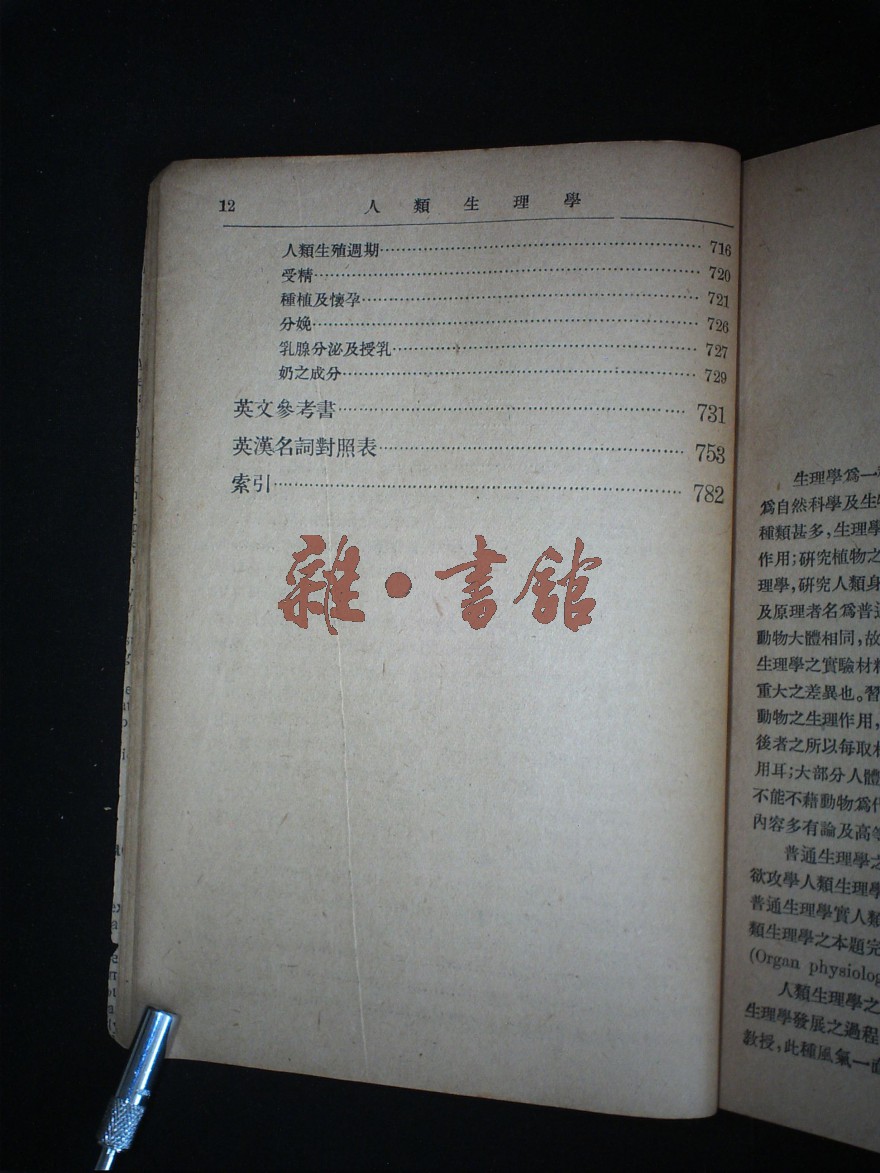 12 人類生理學
人類生殖週期 716
受精 720
種植及懷孕 721
分娩 726
乳腺分泌及授乳 727
奶之成分 729
英文參考書 731
英漢名詞對照表 753
索引 782
雜·書館
生理學爲一
爲自然科學及生
種類甚多,生理學
作用;研究植物之
理學,研究人類身
及原理者名爲普通
動物大體相同,故
生理學之實驗材料
重大之差異也。習
動物之生理作用,
後者之所以每取材
用耳;大部分人體
不能不藉動物爲代
內容多有論及高等
普通生理學之
欲攻學人類生理學
普通生理學實人類
類生理學之本題完
(Organ physiolog
人類生理學之
生理學發展之過程
教授,此種風氣一直